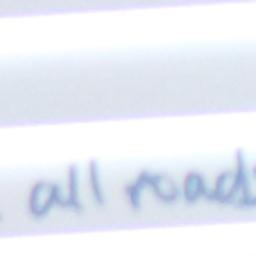 all roads